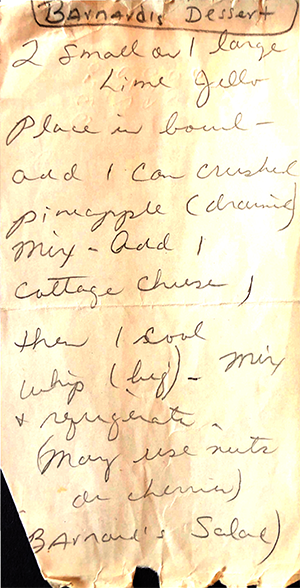 Barnardis Dessert
2 small or 1 large
Lime Jello
Place in bowl -
add 1 can crushed
pineapple (drained)
mix - add 1
cottage cheese,
then 1 cool
whip (big) - mix
& refrigerate.
(May use nuts
or cherries)
Barnard's Salad)